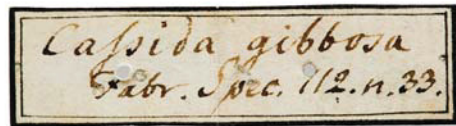 Caſsida gibbosa
Fabr. Spec. 112. n. 33.